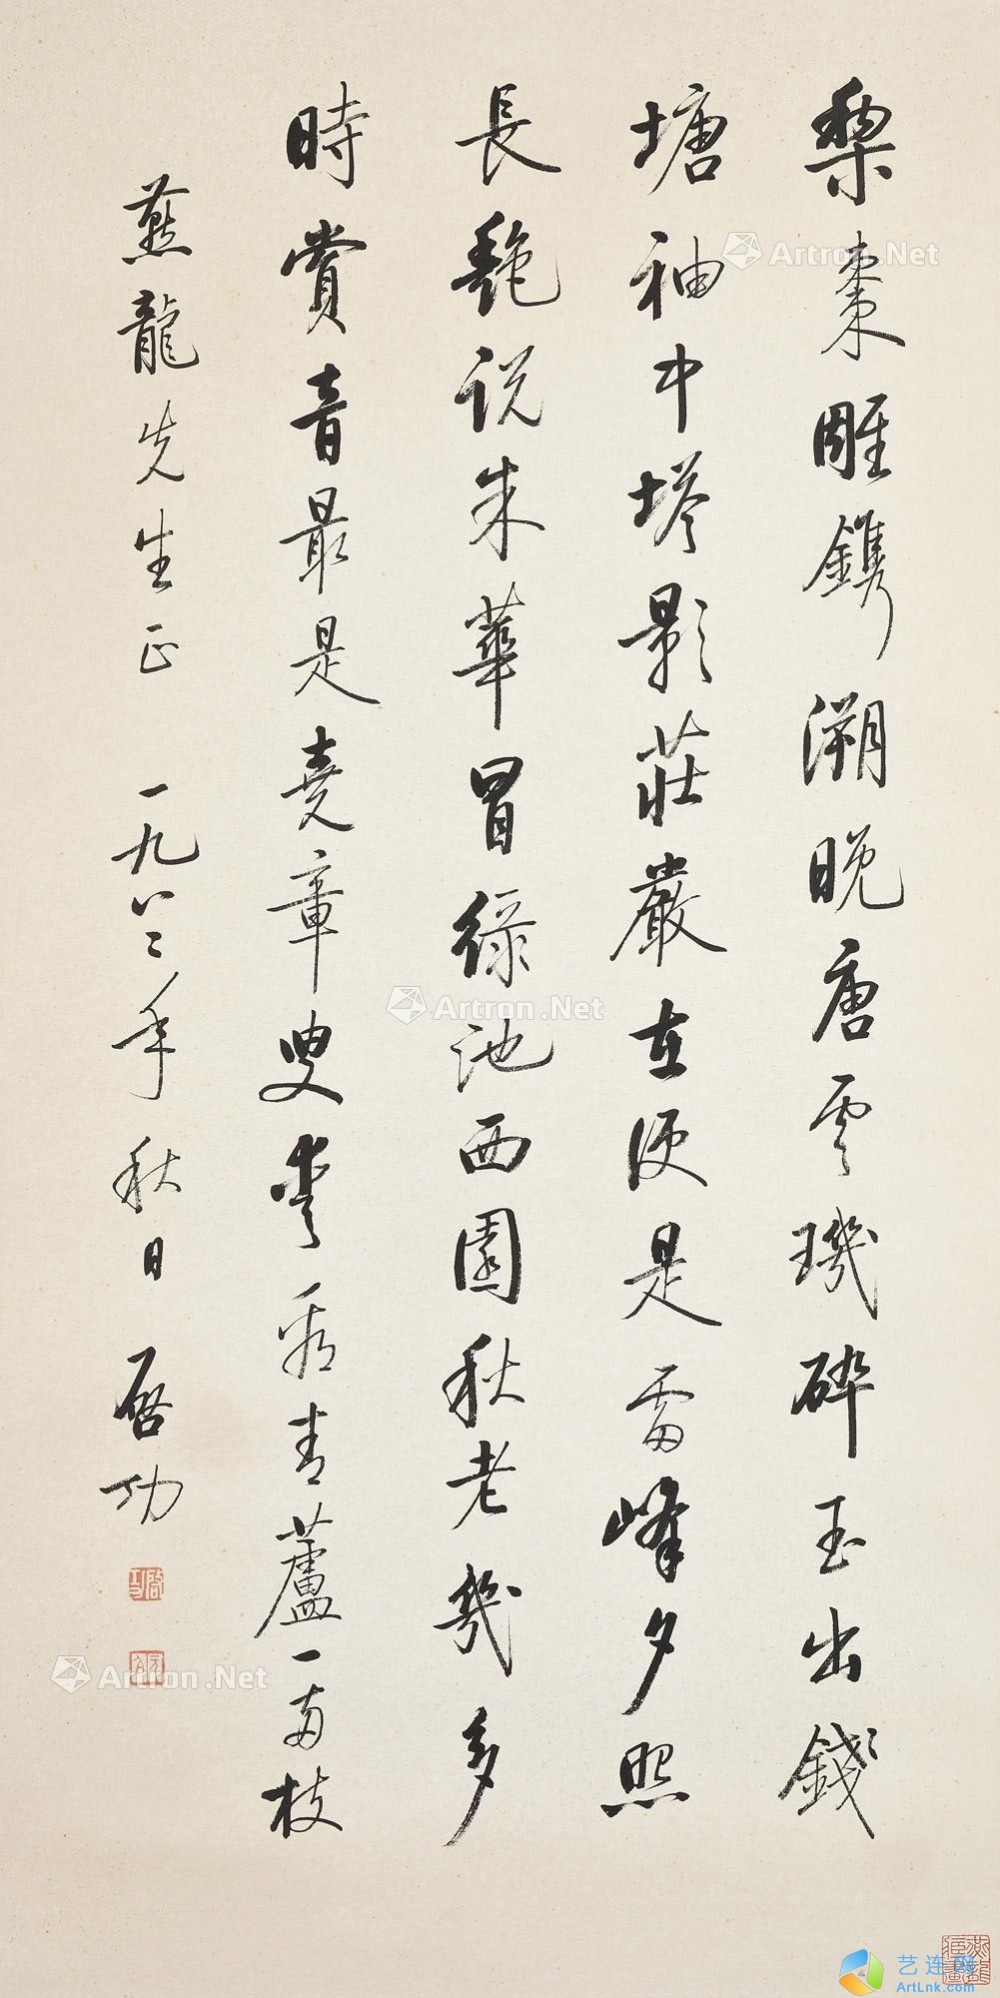 棃棗雕鐫溯晚唐零璣碎玉出錢
塘袖中塔影莊嚴在便是雷峰夕照
長艷说朱華冒緑池西園秋老幾多
時賞音最是堯章叟愛看青蘆一兩枝
燕龍先生正 一九八二年秋日 啓功
啟功
元白
Artron.Net
Artron.Net
Artron.Net
艺连网
ArtLnk.com